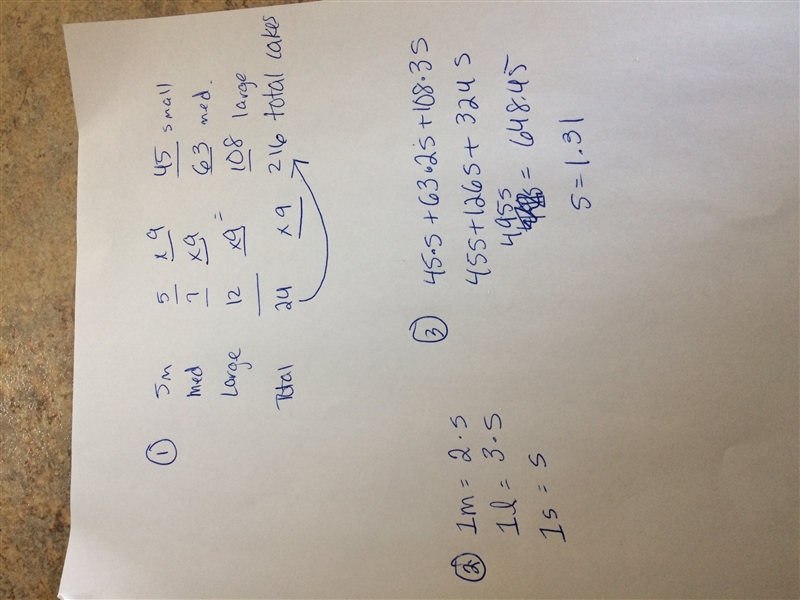 ①
sm 5 x 9 45 small
med 7 x 9 63 med.
large 12 x 9 = 108 large
Total 24 x 9 216 total cakes
②
1m = 2·s
1l = 3·s
1s = s
③
45·s + 63·2s + 108·3s
45s + 126s + 324s
495s = 648.45
s = 1.31